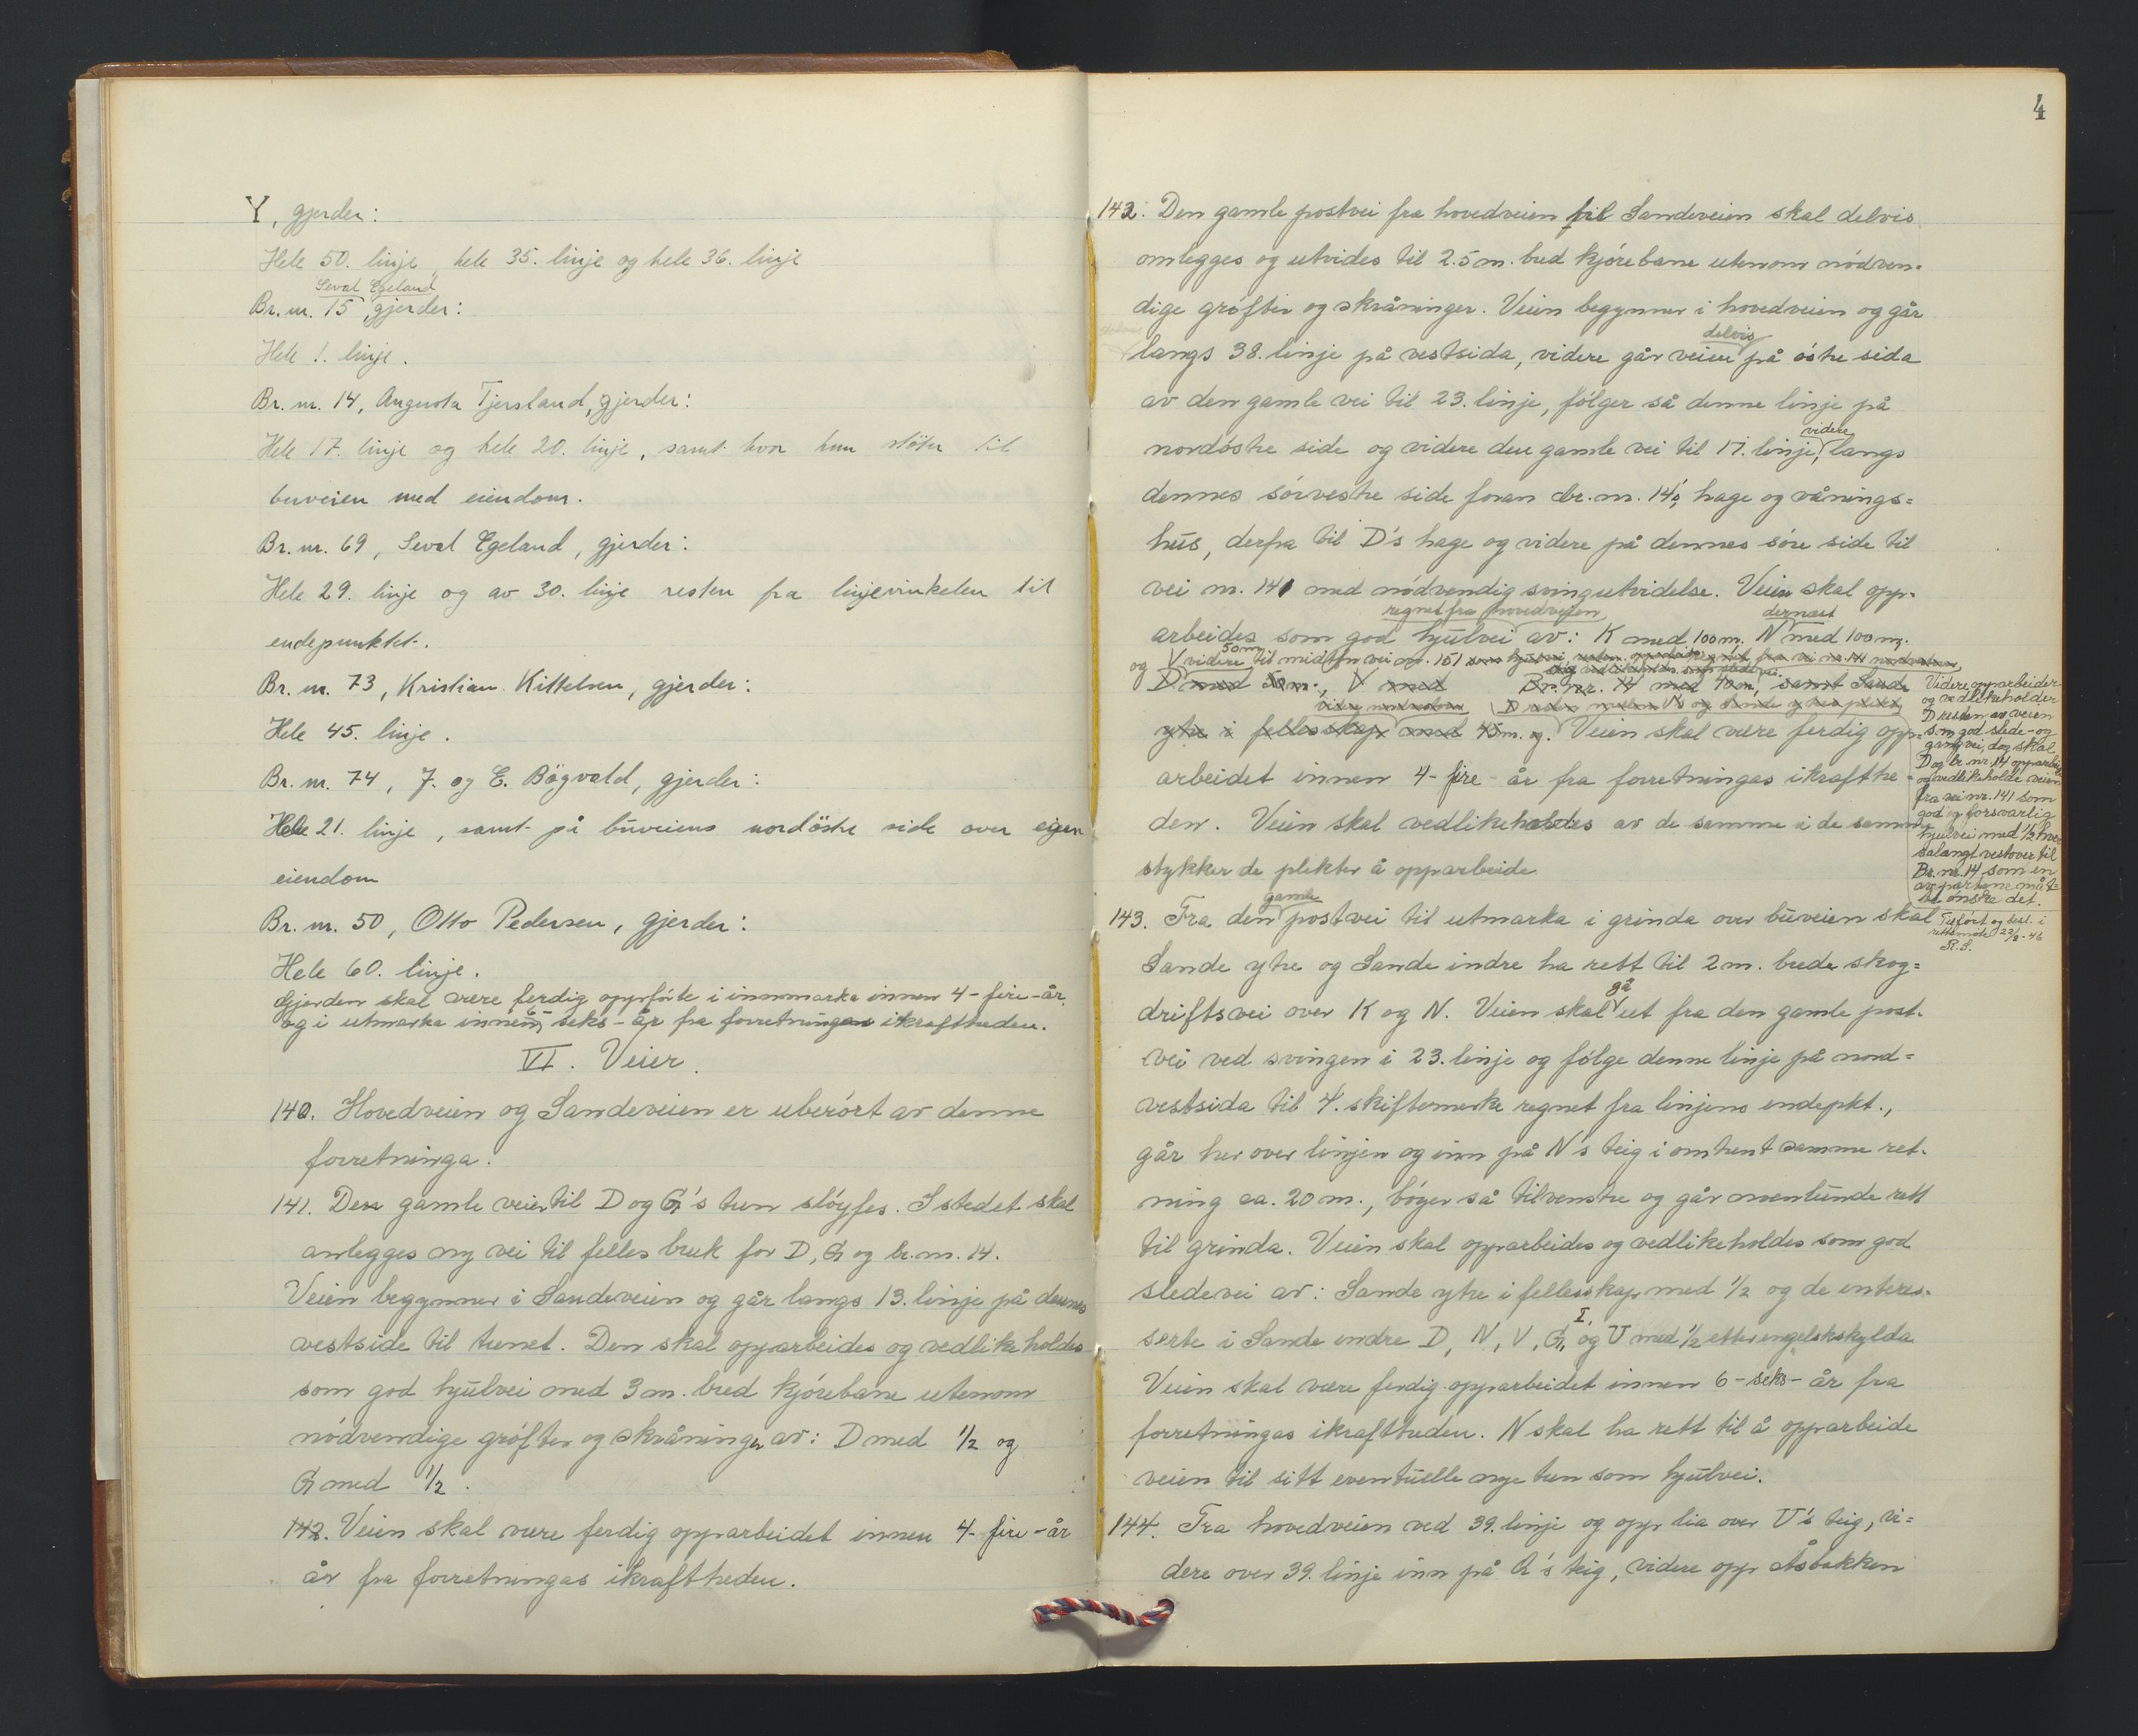 Y, gjerder:
Hele 50. linje, hele 35. linje og hele 36. linje
Seval Egeland
Br. nr. 15, gjerder:
Hele 1. linje.
Br. nr. 14, Augusta Tjersland, gjerder:
Hele 17. linje og hele 20. linje, samt hvor hun støter til
buveien med eiendom.
Br. nr. 69, Seval Egeland, gjerder:
Hele 29. linje og av 30. linje resten fra linjevinkelen til
endepunktet.
Br. nr. 73, Kristian Kittelsen, gjerder:
Hele 45. linje.
Br. nr. 74, J. og E. Bøgvald, gjerder:
Hele 21. linje, samt på buveiens nordöstre side over egen
eiendom
Br. nr. 50, Otto Pedersen, gjerder:
Hele 60. linje.
Gjerden skal være ferdig oppförte i innmarka innen 4-fire-år
og i utmarka innen 6-seks-år fra forretningas ikrafttreden.
VI. Veier.
140. Hovedveien og Sandeveien er uberórt av denne
forretninga.
141. Den gamle veien til D og G's tun slóyfes. I stedet skal
anlegges ny vei til felles bruk for D, G og br. nr. 14.
Veien begynner i Sandeveien og går langs 13. linje på dennes
vestside til tunet. Den skal opparbeides og vedlikeholdes
som god hjulvei med 3 m. bred kjórebane utenom
nódvendige grófter og skråninger av: D med 1/2 og
G med 1/2.
142. Veien skal være ferdig opparbeidet innen 4-fire-år
år fra forretningas ikrafttreden.
4
142. Den gamle postvei fra hovedveien til Sandeveien skal delvis
omlegges og utvides til 2.5 m. bred kjórebane utenom nódven-
dige grófter og skråninger. Veien begynner i hovedveien og går
delvis
langs 38. linje på vestsida, videre går veien på óstre sida
av den gamle vei til 23. linje, fólger så denne linje på
videre
nordóstre side og videre den gamle vei til 17. linje, langs
dennes sórvestre side foran br. nr. 14's hage og vånings=
hus, derfra til D's hage og videre på dennes sóre side til
vei nr. 141 med nódvendig svingutvidelse. Veien skal opp-
regnet fra hovedveien dernæst
arbeides som god hjulvei av: K med 100 m. N med 100 m.
50 m
og V videre til midt for vei nr. 151 som hjulvei
D med 50 m., V med Br. nr. 14 med 40 m, samt Sande
ytre i fellesskap med 45 m. og. Veien skal være ferdig opp-
arbeidet innen 4-fire-år fra forretningas ikrafttre-
den. Veien skal vedlikeholdes av de samme i de samme
stykker de plikter å opparbeide
Videre opparbeider
og vedlikeholder
D resten av veien
som god slede- og
gangvei, dog skal
D og br. nr. 14 opparbeide
og vedlikeholde veien
fra vei nr. 141 som
god og forsvarlig
hjulvei med 1/2 hver
salangt vestover til
Br. nr. 14 som en
av partene måtte
ønske det.
Tilført og best. i
rettsmøte 22/8-46
R.S.
gamle
143. Fra den postvei til utmarka i grinda over buveien skal
Sande ytre og Sande indre ha rett til 2 m. brede skog=
gå
driftsvei over K og N. Veien skal ut fra den gamle post-
vei ved svingen i 23. linje og fólge denne linje på nord=
vestsida til 4. skiftemerke regnet fra linjens endepkt.,
går her over linjen og inn på N's teig i omtrent samme ret-
ning ca. 20 m., bóyer så tilvenstre og går noenlunde rett
til grinda. Veien skal opparbeides og vedlikeholdes som god
sledevei av: Sande ytre i fellesskap med 1/2 og de interes-
I,
serte i Sande indre D, N, V, G, og U med 1/2 etter engelskskylda
Veien skal være ferdig opparbeidet innen 6-seks-år fra
forretningas ikrafttreden. N skal ha rett til å opparbeide
veien til sitt eventuelle nye tun som hjulvei.
144. Fra hovedveien ved 39. linje og opp lia over U's teig, vi=
dere over 39. linje inn på A's teig, videre opp Åsbakken